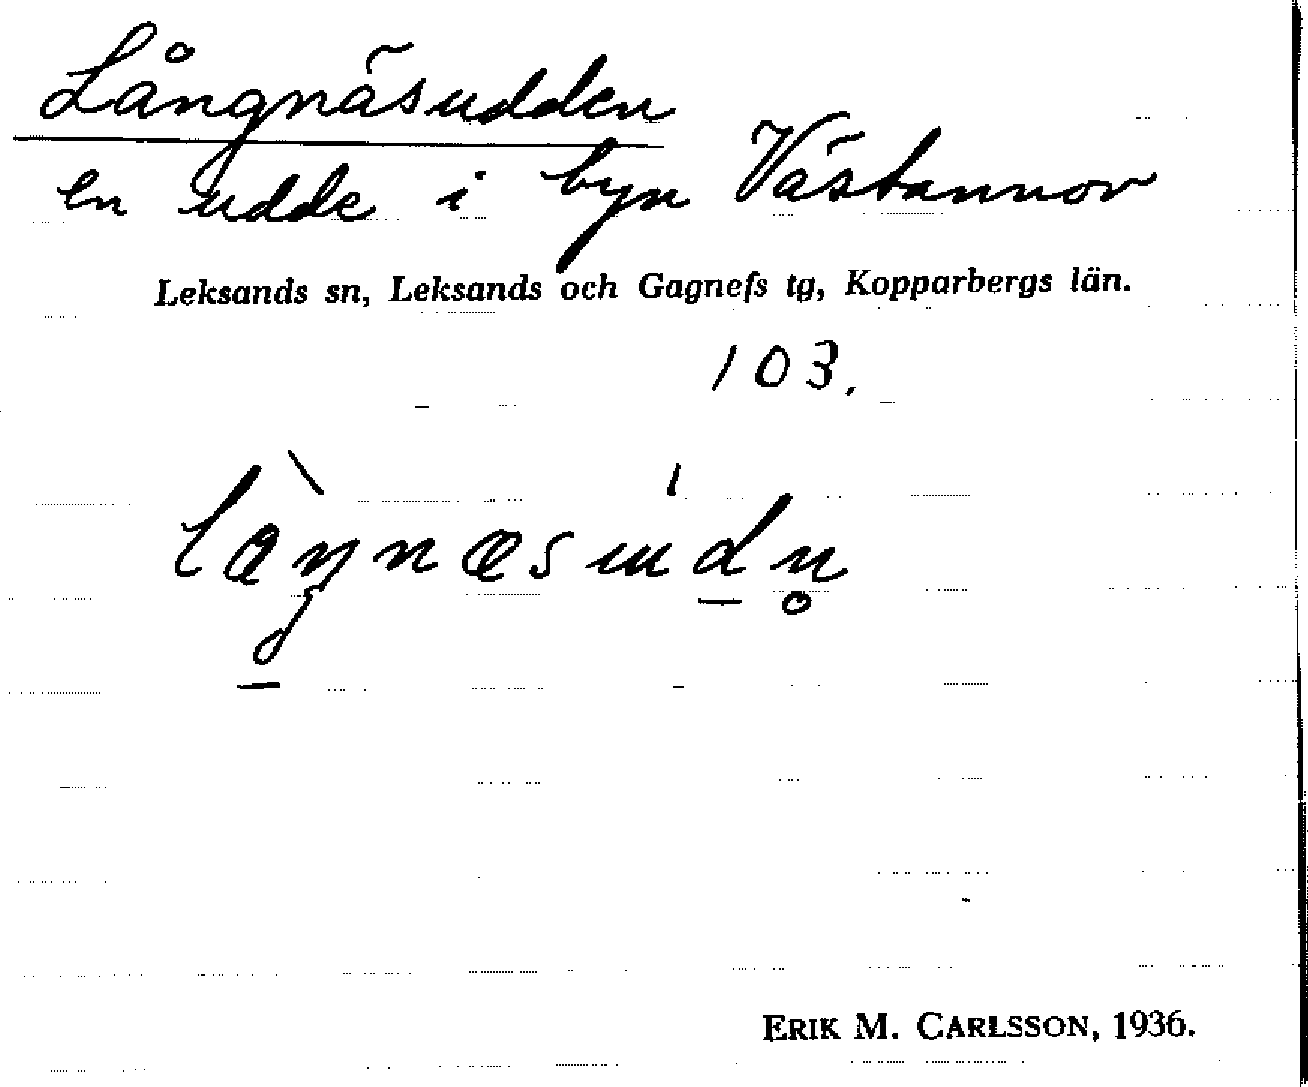 Långnäsudden
en udde i byn Västannor
Leksands sn, Leksands och Gagnefs tg, Kopparbergs län.
103.
ERIK M. CARLSSON, 1936.